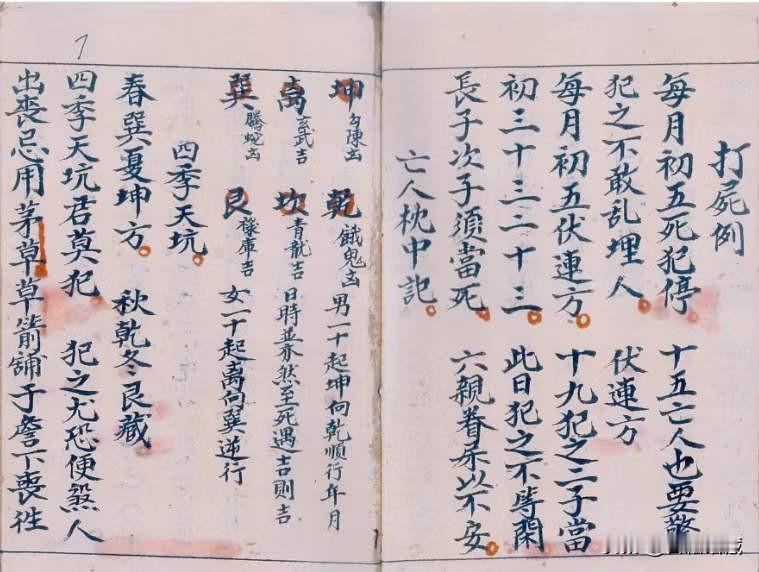 打屍例
每月初五死犯停 十五亡人也要
犯之不敢乱埋人 伏連方
每月初五伏連方 十九犯之二子當
初三十三二十三 此日犯之不等閑
長子次子須當死 六親眷不安
亡人枕中記
坤 勾陳凶 乾 餓鬼凶 男一十起坤向乾順行年月
离 玄武吉 坎 青龍吉 日時並亦然至死遇吉則吉
巽 騰蛇凶 艮 祿庫吉 女一十起离向巽逆行
四季天坑
春巽夏坤方 秋乾冬艮藏
四季天坑君莫犯 犯之尤恐便煞人
出喪忌用茅草草箭舖于詹下喪徃
7